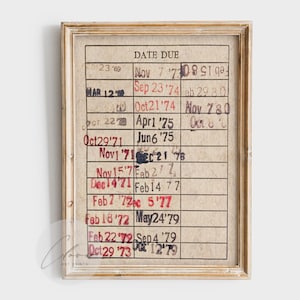 DATE DUE
Nov 7 '73
MAR 12
Sep 23 '74
Oct 21 '74
Nov 7 80
Apr 1 '75
Oct 29 '71
Jun 6 '75
Nov 1 '71
Dec 21 '76
Nov 15 '7
Feb 2
Dec 14 '71
Feb 14 77
Feb 7 '72
Dec 5 '77
Feb 18 '72
May 24 '79
Feb 22 '72
Sep 4 '79
Oct 29 '73
Dec 12 '79